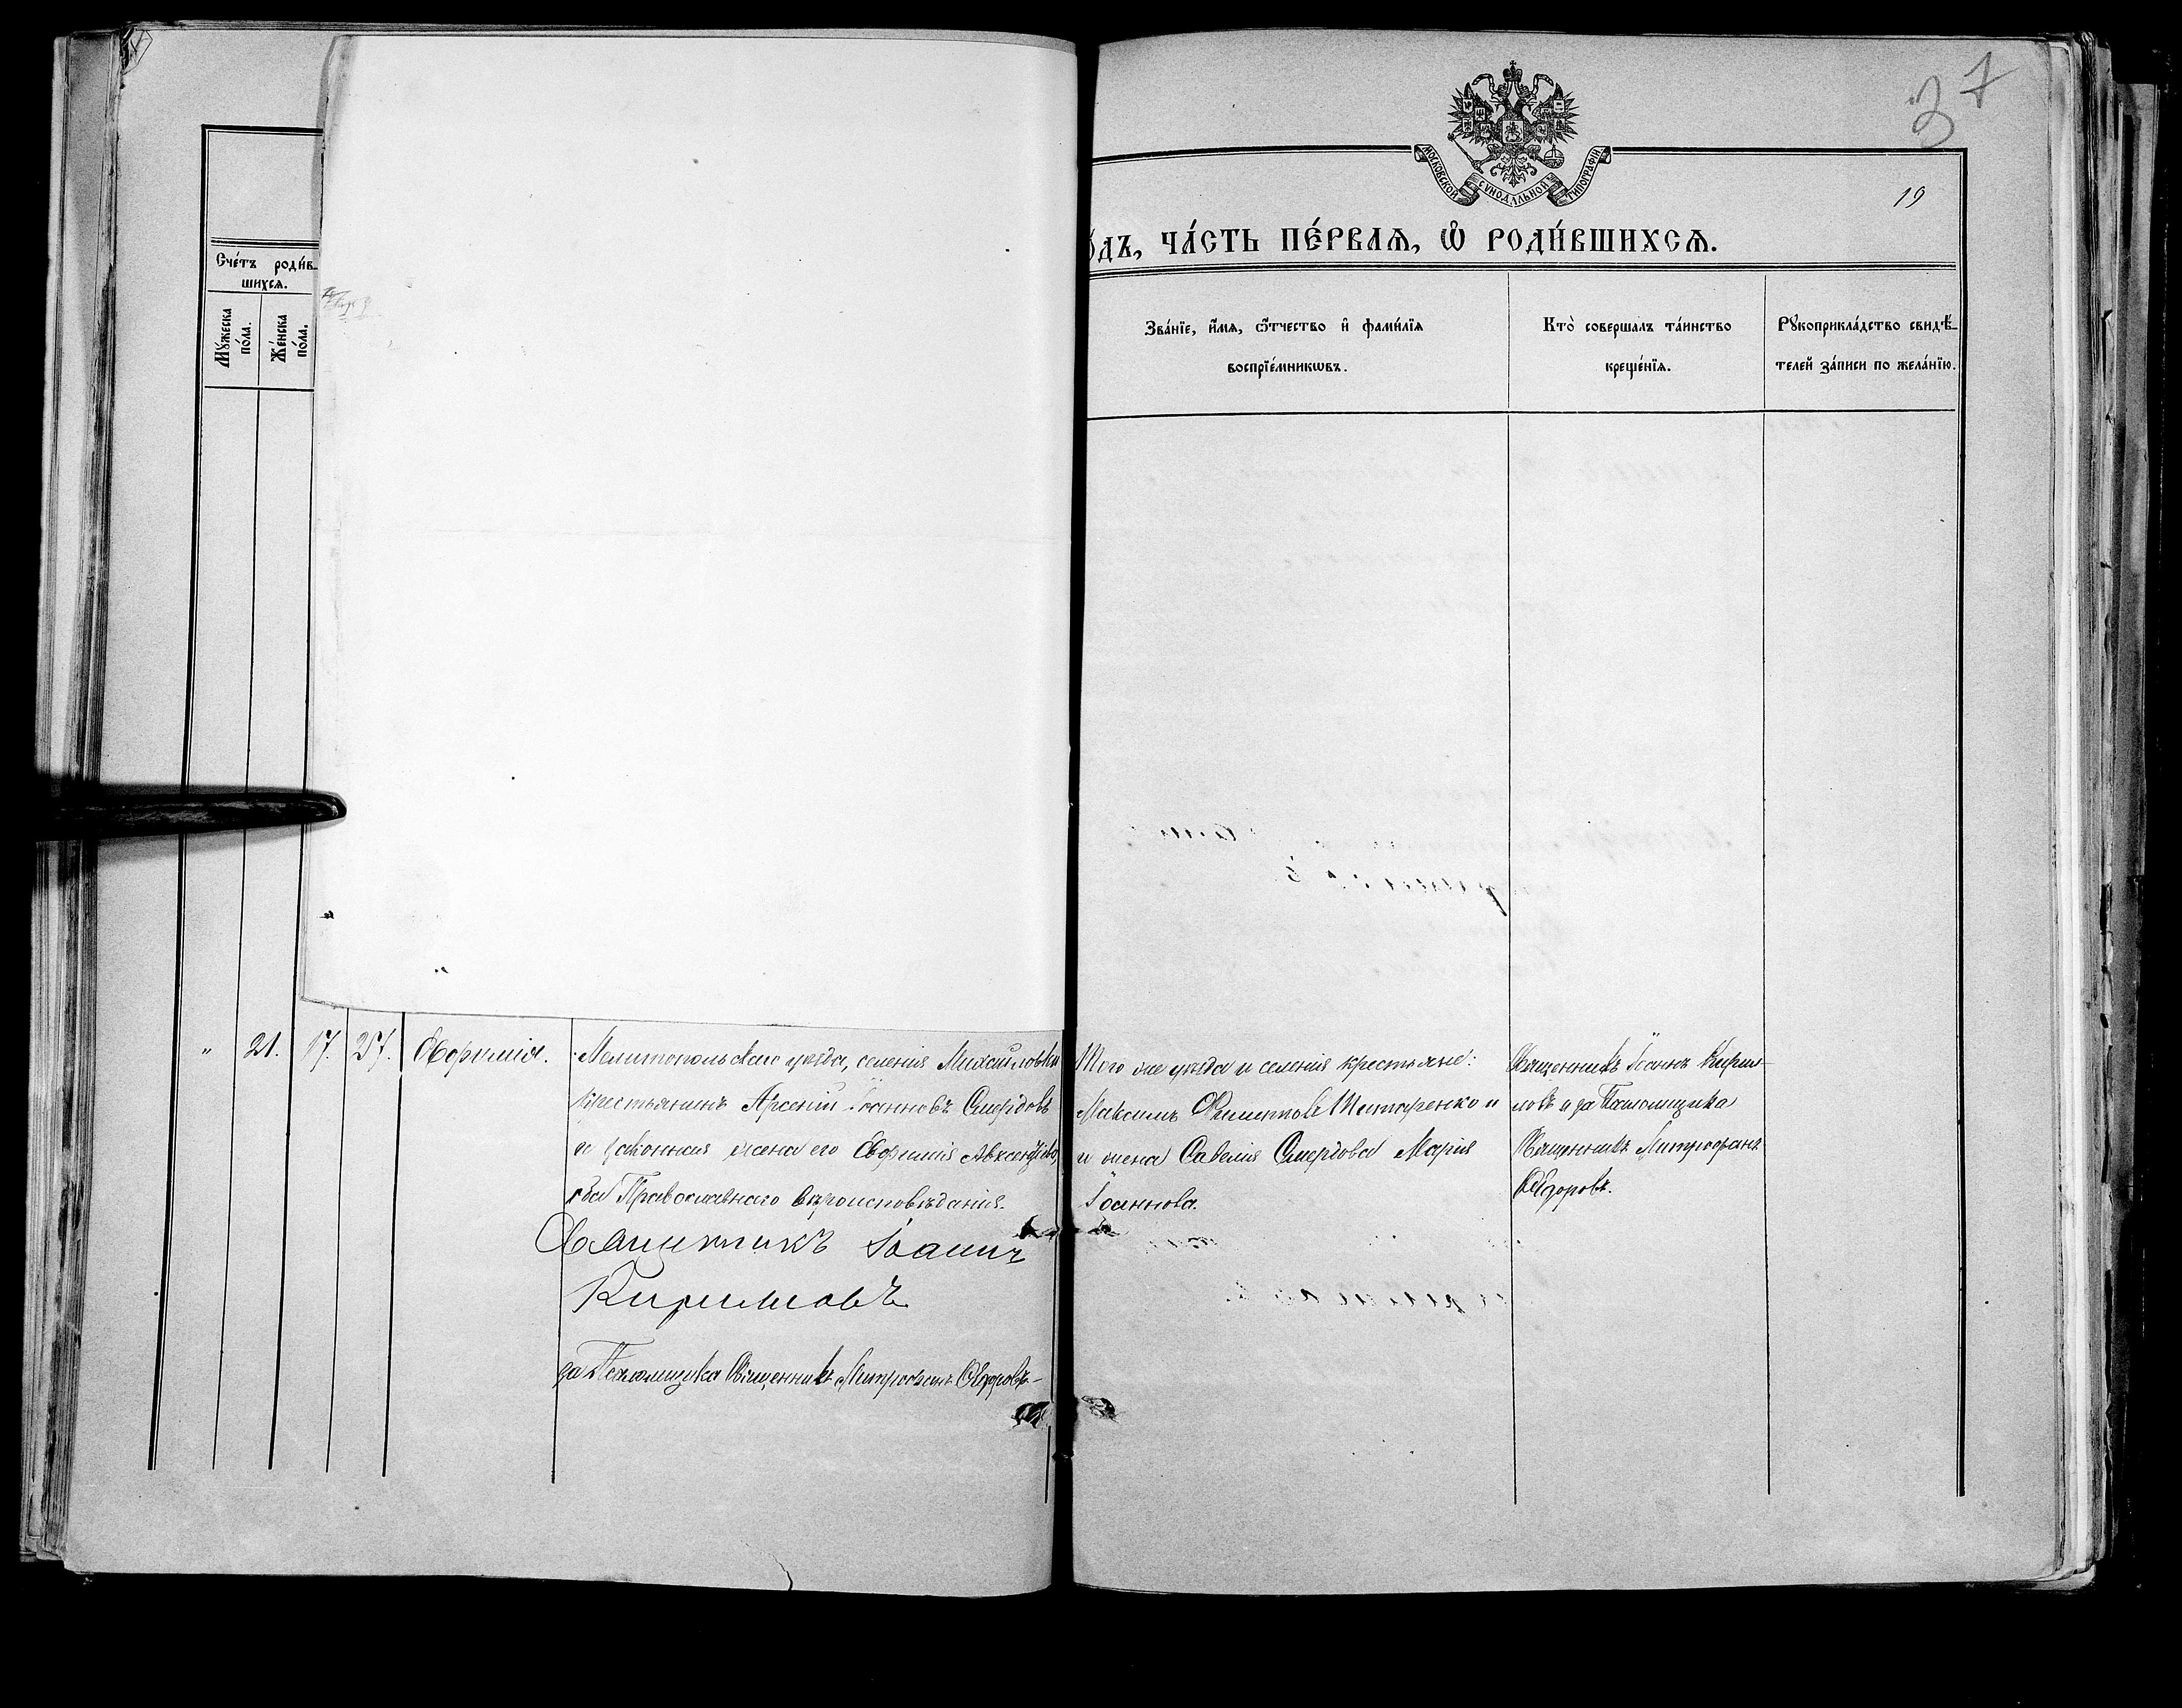 37
19
МОСКОВСКОЙ СѴНОДАЛЬНОЙ ТИПОГРАФІИ.
о́дъ, ча́сть пе́рваѧ, ѡ҆ роди́вшихсѧ.
Сче́тъ роди́в-
шихсѧ.
Мꙋ́жеска по́ла.
Же́нска по́ла.
Зва́нїе, и҆́мѧ, ѻ҆́тчество и҆ фами́лїѧ
воспрїе́мникѡвъ.
Кто̀ соверша́лъ та́инство
креще́нїѧ.
Рꙋкоприкла́дство свидѣ́-
телей за́писи по жела́нїю.
" 21. 17. 27. Евфимія.
Мелитопольскаго уѣзда, селенія Михайловки
крестьянинъ Арсеній Іоанновъ Смердовъ
и законная жена его Евфимія Авксентіева,
оба Православнаго вѣроисповѣданія.
Священникъ Іоаннъ
Кирилловъ
за Псаломщика Священникъ Митрофанъ Ѳедоровъ
Того же уѣзда и селенія крестьяне:
Максимъ Титаренко и
и жена Савелія Смердова Марія
Іоаннова.
Священникъ Іоаннъ Кирил-
ловъ и за Псаломщика
Священникъ Митрофанъ
Ѳедоровъ.